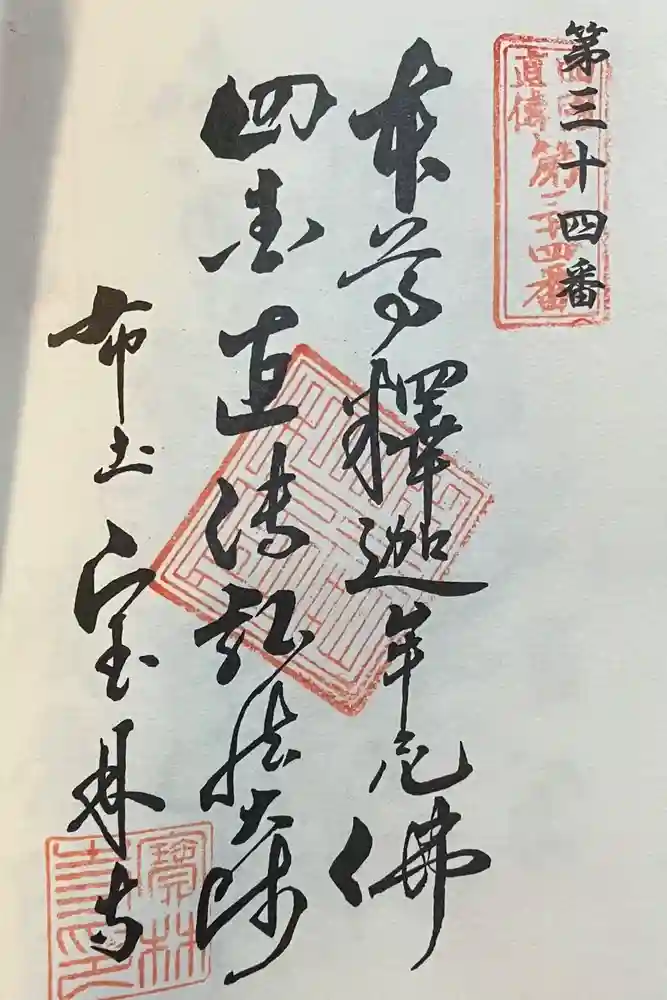 第三十四番
四国
直傳
第三十四番
本尊釋迦牟尼佛
四国直傳弘法大師
布土 宝林寺
寶林
寺印